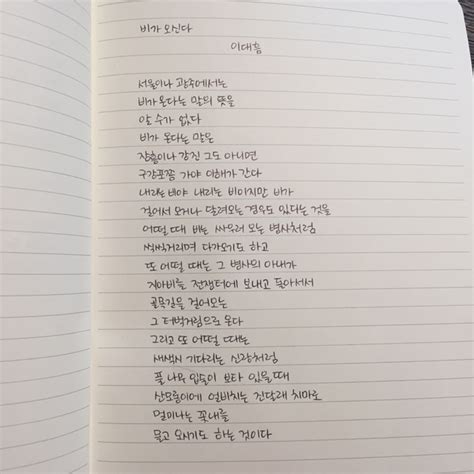 비가 오신다
이대흠
서울이나 광주에서는
비가 온다는 말의 뜻을
알 수가 없다
비가 온다는 말은
장흥이나 강진 그도 아니면
구강포쯤 가야 이해가 간다
내리는 비야 내리는 비이지만 비가
걸어서 오거나 달려오는 경우도 있다는 것을
어떨 때 비는 싸우러 오는 병사처럼
씩씩거리며 다가오기도 하고
또 어떨 때는 그 병사의 아내가
지아비를 전쟁터에 보내고 돌아서서
골목길을 걸어오는
그 터벅거림으로 온다
그리고 또 어떨 때는
새색시 기다리는 신랑처럼
풀 나무 입술이 보타 있을 때
산모롱이에 얼비치는 진달래 치마로
멀미나는 꽃내를
몰고 오시기도 하는 것이다